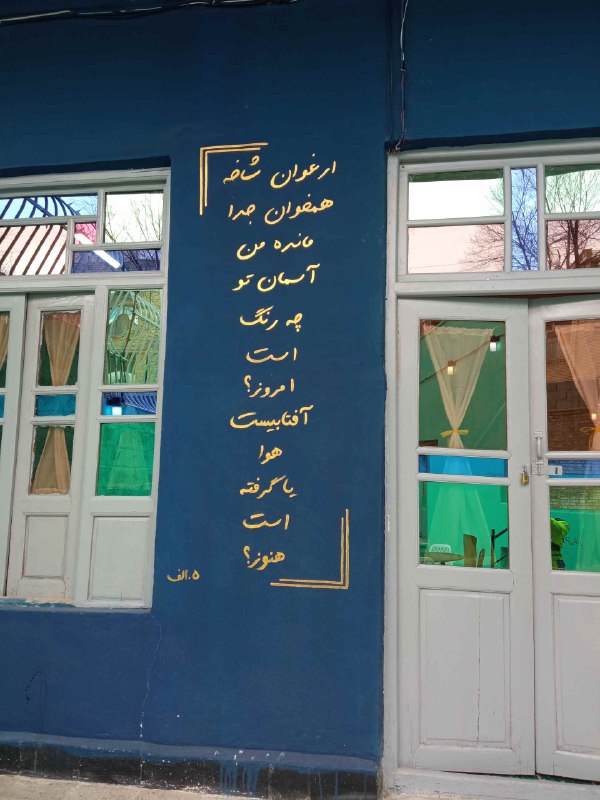 ارغوان شاخه
همخوان جدا
مانده من
آسمان تو
چه رنگ
است
امروز؟
آفتابیست
هوا
یا گرفته
است
هنوز؟
ه.الف